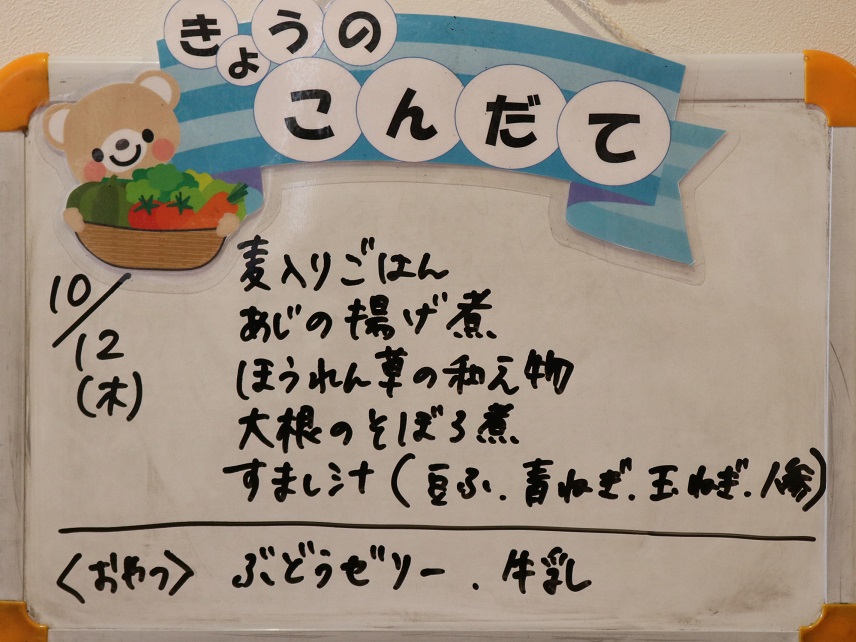 きょうの
こんだて
10/12
(木)
麦入りごはん
あじの揚げ煮
ほうれん草の和え物
大根のそぼろ煮
すまし汁(豆ふ、青ねぎ、玉ねぎ、人参)
〈おやつ〉 ぶどうゼリー、牛乳